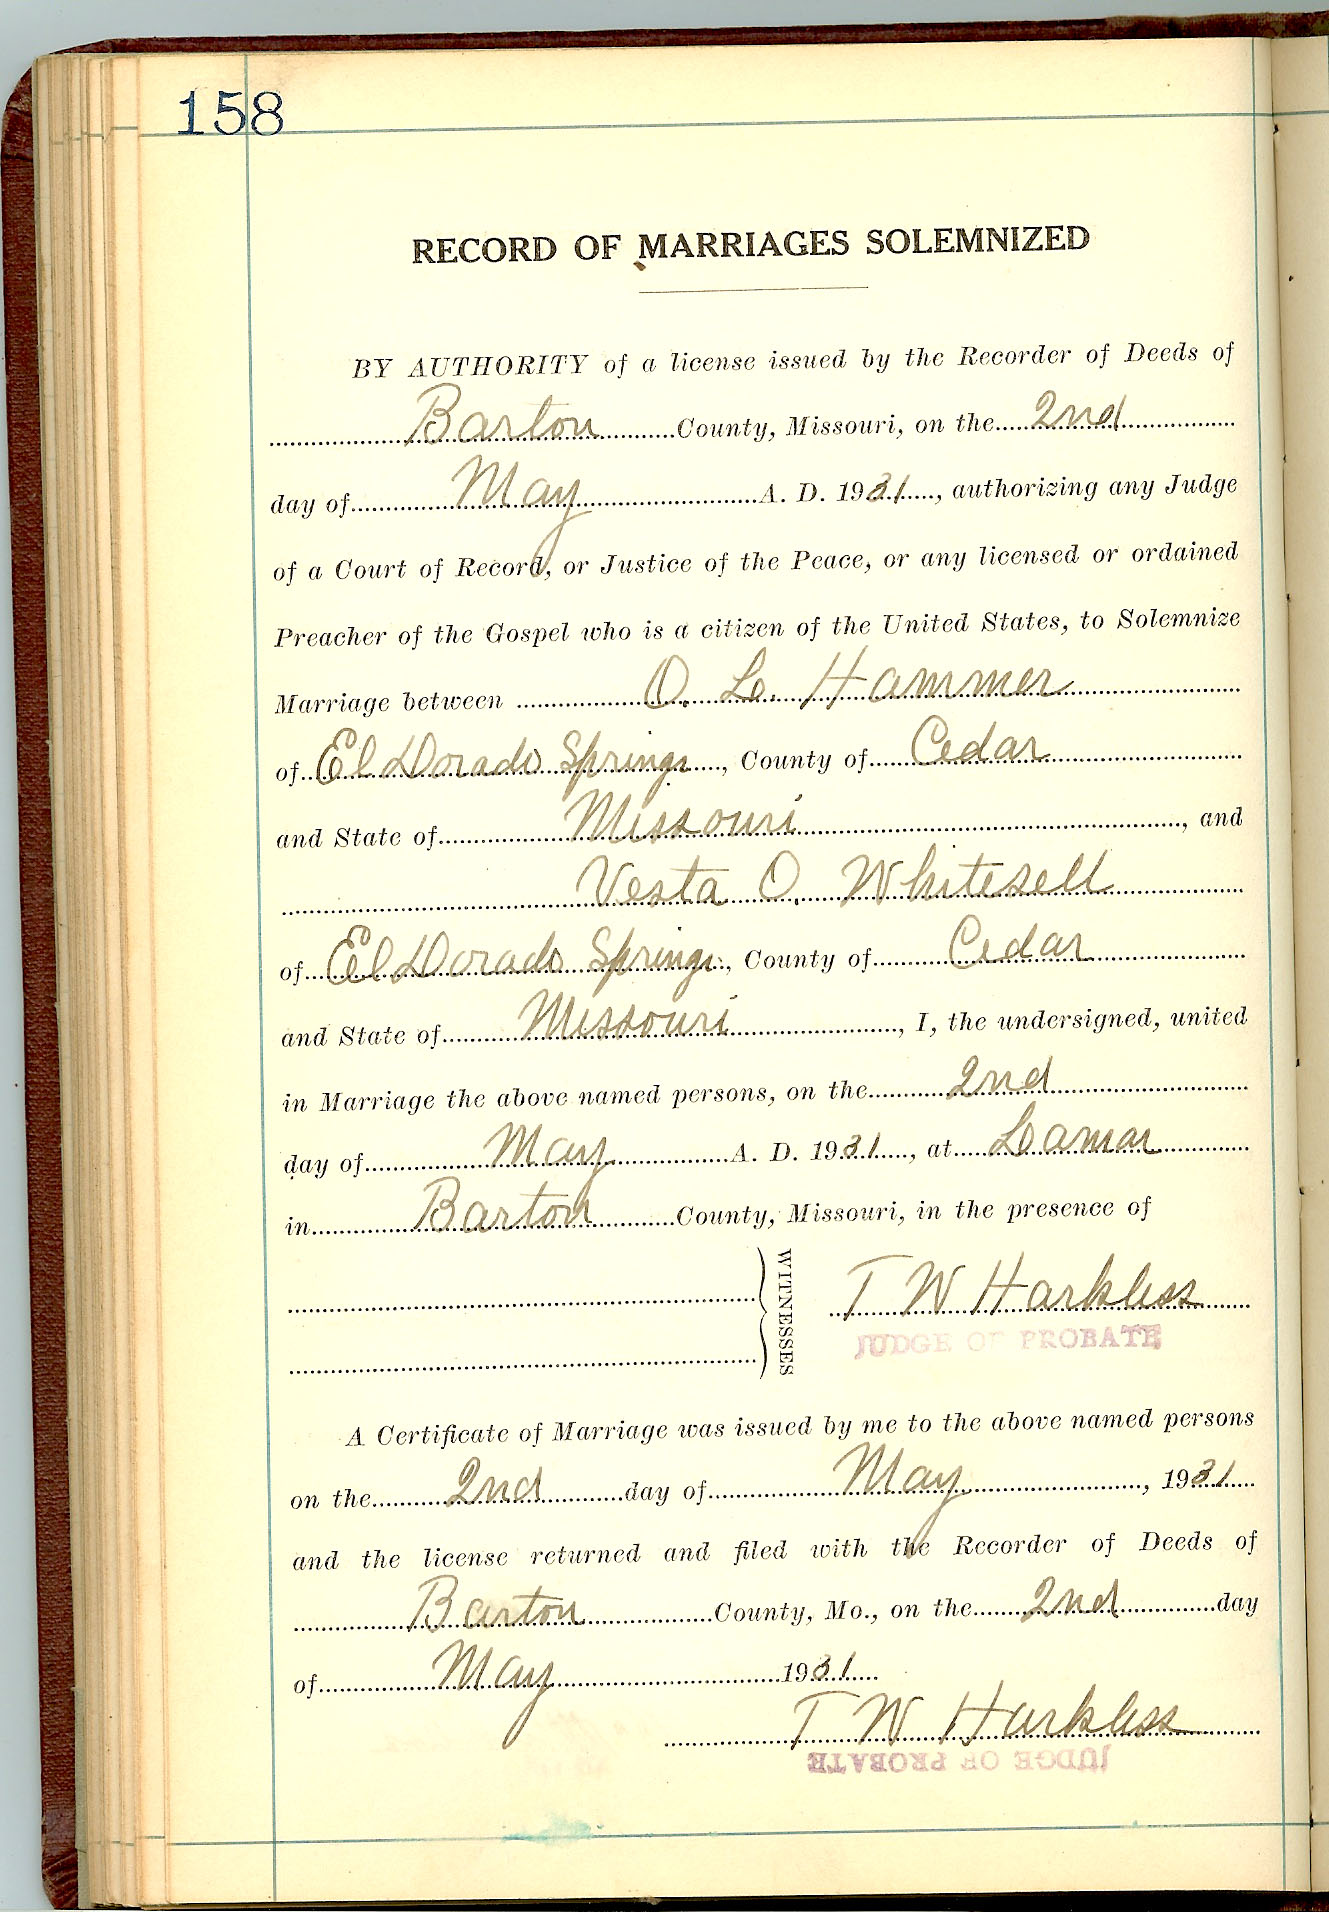 158
RECORD OF MARRIAGES SOLEMNIZED
BY AUTHORITY of a license issued by the Recorder of Deeds of
Barton County, Missouri, on the 2nd
day of May A. D. 1931, authorizing any Judge
of a Court of Record, or Justice of the Peace, or any licensed or ordained
Preacher of the Gospel who is a citizen of the United States, to Solemnize
Marriage between O. L. Hammer
of El Dorado Springs, County of Cedar
and State of Missouri, and
Vesta O. Whitesell
of El Dorado Springs, County of Cedar
and State of Missouri, I, the undersigned, united
in Marriage the above named persons, on the 2nd
day of May A. D. 1931, at Lamar
in Barton County, Missouri, in the presence of
WITNESSES
T W Harkless
JUDGE OF PROBATE
A Certificate of Marriage was issued by me to the above named persons
on the 2nd day of May, 1931
and the license returned and filed with the Recorder of Deeds of
Barton County, Mo., on the 2nd day
of May 1931
T W Harkless
JUDGE OF PROBATE